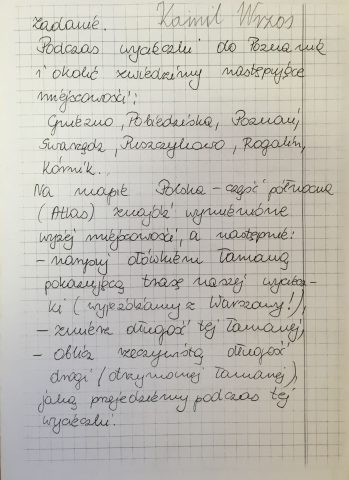 Zadanie. Kamil Wrzos
Podczas wycieczki do Poznania
i okolic zwiedzimy następujące
miejscowości:
Gniezno, Pobiedziska, Poznań,
Swarzędz, Puszczykowo, Rogalin,
Kórnik.
Na mapie Polska - część północna
(Atlas) znajdź wymienione
wyżej miejscowości, a następnie:
- narysuj ołówkiem łamaną
pokazującą trasę naszej wyciecz-
ki (wyjeżdżamy z Warszawy!),
- zmierz długość tej łamanej,
- oblicz rzeczywistą długość
drogi (otrzymanej łamanej),
jaką przejedziemy podczas tej
wycieczki.